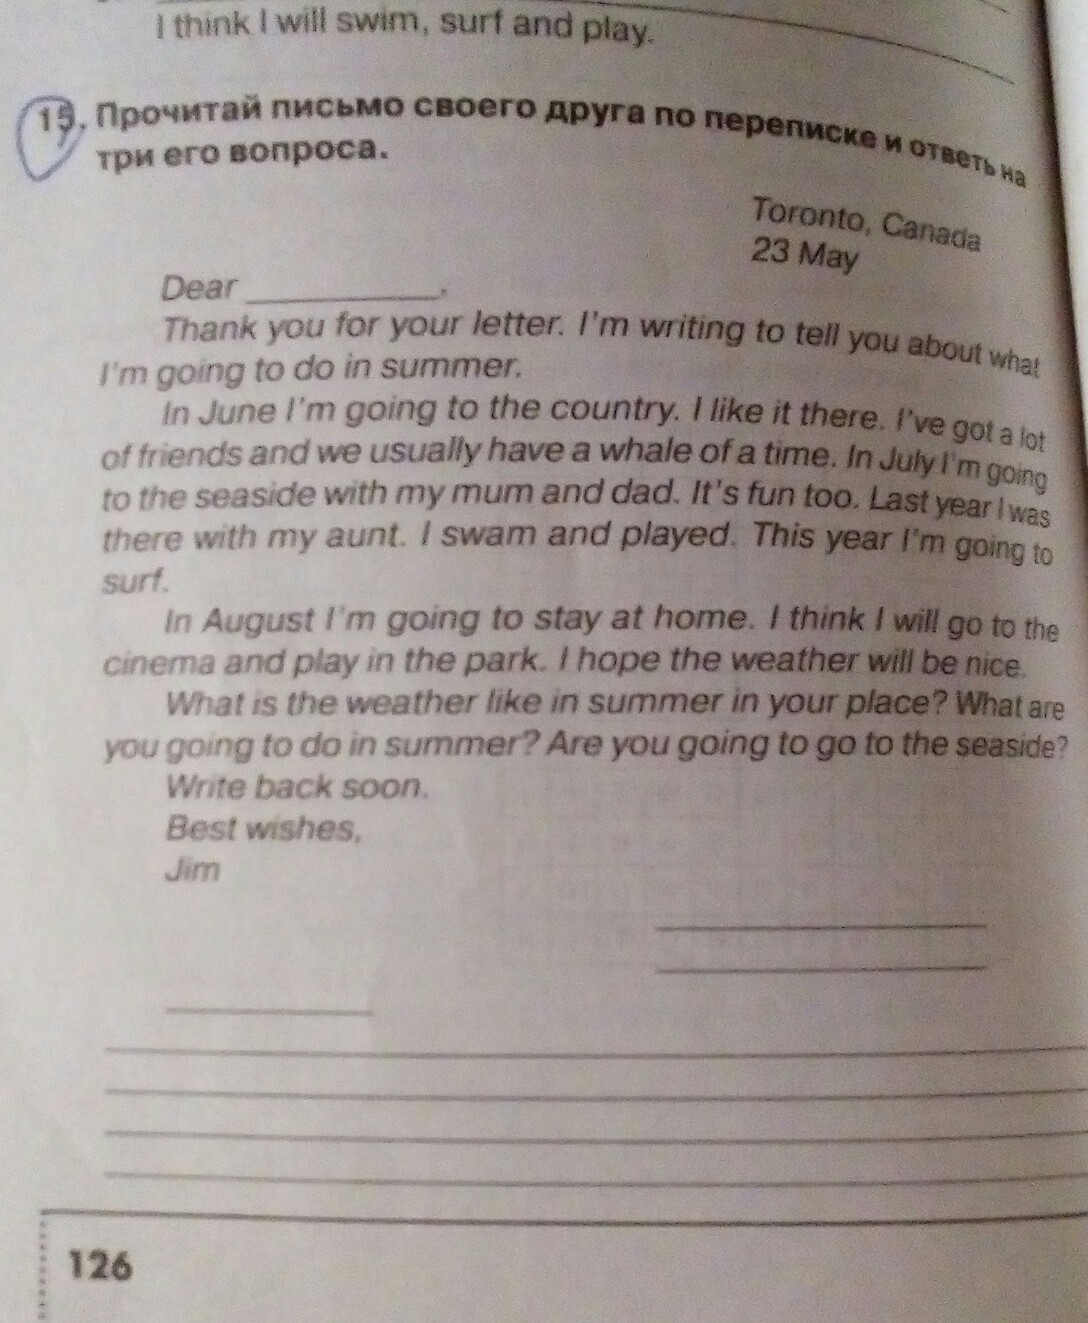 I think I will swim, surf and play.
15. Прочитай письмо своего друга по переписке и ответь на
три его вопроса.
Toronto, Canada
23 May
Dear ____________,
Thank you for your letter. I'm writing to tell you about what
I'm going to do in summer.
In June I'm going to the country. I like it there. I've got a lot
of friends and we usually have a whale of a time. In July I'm going
to the seaside with my mum and dad. It's fun too. Last year I was
there with my aunt. I swam and played. This year I'm going to
surf.
In August I'm going to stay at home. I think I will go to the
cinema and play in the park. I hope the weather will be nice.
What is the weather like in summer in your place? What are
you going to do in summer? Are you going to go to the seaside?
Write back soon.
Best wishes,
Jim
126